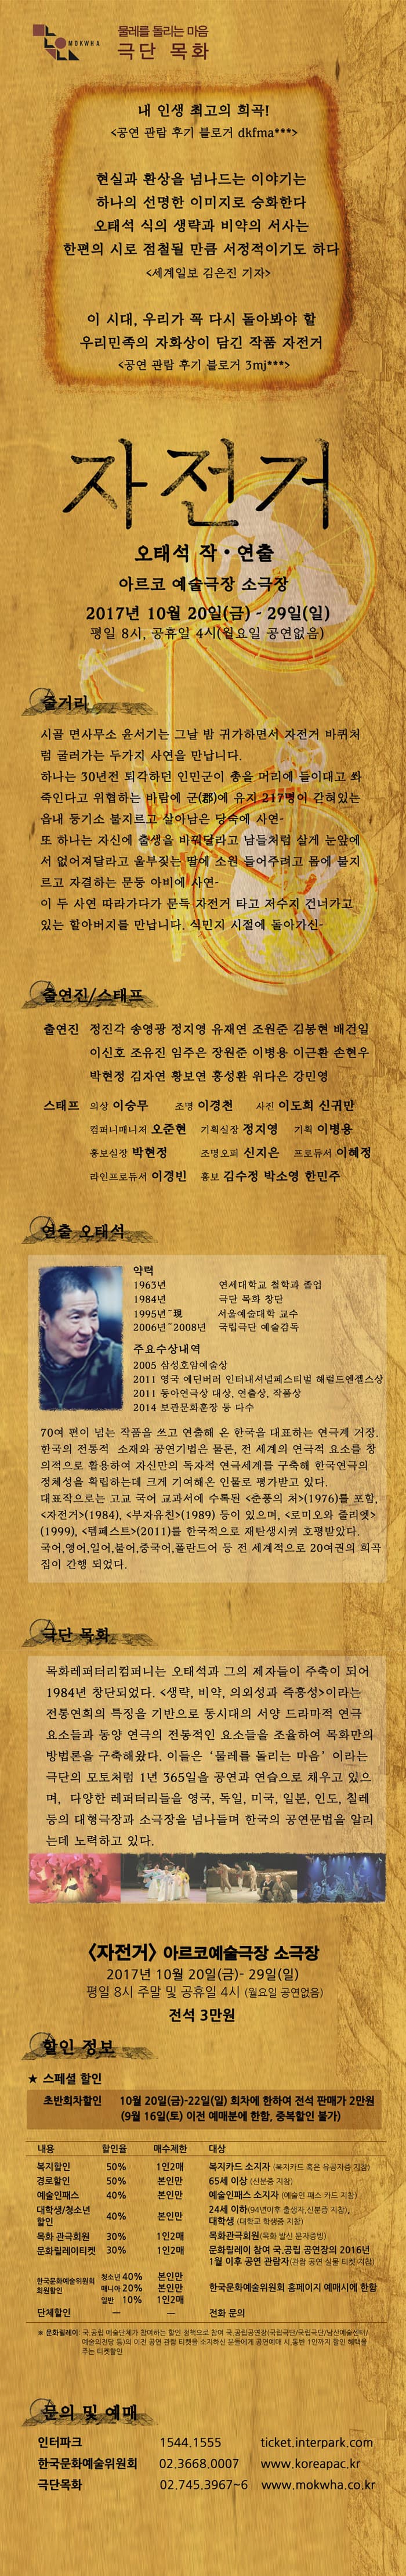 MOKWHA
물레를 돌리는 마음
극단 목화
내 인생 최고의 희곡!
<공연 관람 후기 블로거 dkfma***>
현실과 환상을 넘나드는 이야기는
하나의 선명한 이미지로 승화한다
오태석 식의 생략과 비약의 서사는
한편의 시로 점철될 만큼 서정적이기도 하다
<세계일보 김은진 기자>
이 시대, 우리가 꼭 다시 돌아봐야 할
우리민족의 자화상이 담긴 작품 자전거
<공연 관람 후기 블로거 3mj***>
자전거
오태석 작・연출
아르코 예술극장 소극장
2017년 10월 20일(금) - 29일(일)
평일 8시, 공휴일 4시(월요일 공연없음)
줄거리
시골 면사무소 윤서기는 그날 밤 귀가하면서 자전거 바퀴처
럼 굴러가는 두가지 사연을 만납니다.
하나는 30년전 퇴각하던 인민군이 총을 머리에 들이대고 쏴
죽인다고 위협하는 바람에 군(郡)에 유지 217명이 갇혀있는
읍내 등기소 불지르고 살아남은 당숙에 사연-
또 하나는 자신에 출생을 바꿔달라고 남들처럼 살게 눈앞에
서 없어져달라고 울부짖는 딸에 소원 들어주려고 몸에 불지
르고 자결하는 문둥 아비에 사연-
이 두 사연 따라가다가 문득 자전거 타고 저수지 건너가고
있는 할아버지를 만납니다. 식민지 시절에 돌아가신-
출연진/스태프
출연진 정진각 송영광 정지영 유재연 조원준 김봉현 배건일
이신호 조유진 임주은 장원준 이병용 이근환 손현우
박현정 김자연 황보연 홍성환 위다은 강민영
스태프 의상 이승무 조명 이경천 사진 이도희 신귀만
컴퍼니매니저 오준현 기획실장 정지영 기획 이병용
홍보실장 박현정 조명오퍼 신지은 프로듀서 이혜정
라인프로듀서 이경빈 홍보 김수정 박소영 한민주
연출 오태석
약력
1963년 연세대학교 철학과 졸업
1984년 극단 목화 창단
1995년~現 서울예술대학 교수
2006년~2008년 국립극단 예술감독
주요수상내역
2005 삼성호암예술상
2011 영국 에딘버러 인터내셔널페스티벌 헤럴드엔젤스상
2011 동아연극상 대상, 연출상, 작품상
2014 보관문화훈장 등 다수
70여 편이 넘는 작품을 쓰고 연출해 온 한국을 대표하는 연극계 거장.
한국의 전통적 소재와 공연기법은 물론, 전 세계의 연극적 요소를 창
의적으로 활용하여 자신만의 독자적 연극세계를 구축해 한국연극의
정체성을 확립하는데 크게 기여해온 인물로 평가받고 있다.
대표작으로는 고교 국어 교과서에 수록된 <춘풍의 처>(1976)를 포함,
<자전거>(1984), <부자유친>(1989) 등이 있으며, <로미오와 줄리엣>
(1999), <템페스트>(2011)를 한국적으로 재탄생시켜 호평받았다.
국어,영어,일어,불어,중국어,폴란드어 등 전 세계적으로 20여권의 희곡
집이 간행 되었다.
극단 목화
목화레퍼터리컴퍼니는 오태석과 그의 제자들이 주축이 되어
1984년 창단되었다. <생략, 비약, 의외성과 즉흥성>이라는
전통연희의 특징을 기반으로 동시대의 서양 드라마적 연극
요소들과 동양 연극의 전통적인 요소들을 조율하여 목화만의
방법론을 구축해왔다. 이들은 ‘물레를 돌리는 마음’ 이라는
극단의 모토처럼 1년 365일을 공연과 연습으로 채우고 있으
며, 다양한 레퍼터리들을 영국, 독일, 미국, 일본, 인도, 칠레
등의 대형극장과 소극장을 넘나들며 한국의 공연문법을 알리
는데 노력하고 있다.
<자전거> 아르코예술극장 소극장
2017년 10월 20일(금)- 29일(일)
평일 8시 주말 및 공휴일 4시 (월요일 공연없음)
전석 3만원
할인 정보
★ 스페셜 할인
초반회차할인 10월 20일(금)-22일(일) 회차에 한하여 전석 판매가 2만원
(9월 16일(토) 이전 예매분에 한함, 중복할인 불가)
내용 할인율 매수제한 대상
복지할인 50% 1인2매 복지카드 소지자 (복지카드 혹은 유공자증 지참)
경로할인 50% 본인만 65세 이상 (신분증 지참)
예술인패스 40% 본인만 예술인패스 소지자 (예술인 패스 카드 지참)
대학생/청소년
할인 40% 본인만 24세 이하(94년이후 출생자,신분증 지참),
대학생 (대학교 학생증 지참)
목화 관극회원 30% 1인2매 목화관극회원(목화 발신 문자증빙)
문화릴레이티켓 30% 1인2매 문화릴레이 참여 국.공립 공연장의 2016년
1월 이후 공연 관람자(관람 공연 실물 티켓 지참)
한국문화예술위원회
회원할인
청소년 40% 본인만
매니아 20% 본인만 한국문화예술위원회 홈페이지 예매시에 한함
일반 10% 1인2매
단체할인 — — 전화 문의
※ 문화릴레이: 국.공립 예술단체가 참여하는 할인 정책으로 참여 국.공립공연장(국립극단/국립극단/남산예술센터/
예술의전당 등)의 이전 공연 관람 티켓을 소지하신 분들에게 공연예매 시,동반 1인까지 할인 혜택을
주는 티켓할인
문의 및 예매
인터파크 1544.1555 ticket.interpark.com
한국문화예술위원회 02.3668.0007 www.koreapac.kr
극단목화 02.745.3967~6 www.mokwha.co.kr